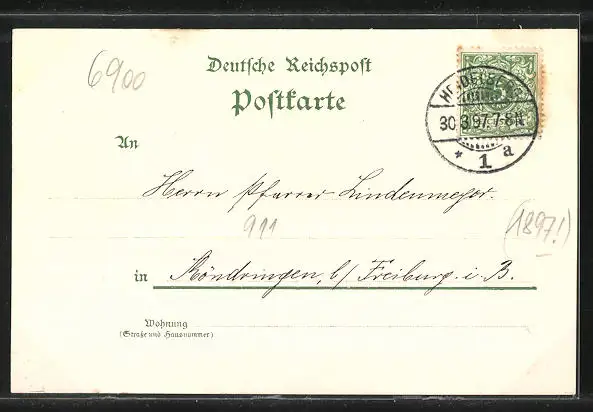 6900
Deutsche Reichspost
Postkarte
HEIDELBERG
30.3.97.7-8N
* 1 a
An
Herrn Pfarrer Lindenmeyer.
911
(1897!)
in Köndringen, b/ Freiburg. i. B.
Wohnung
(Straße und Hausnummer)